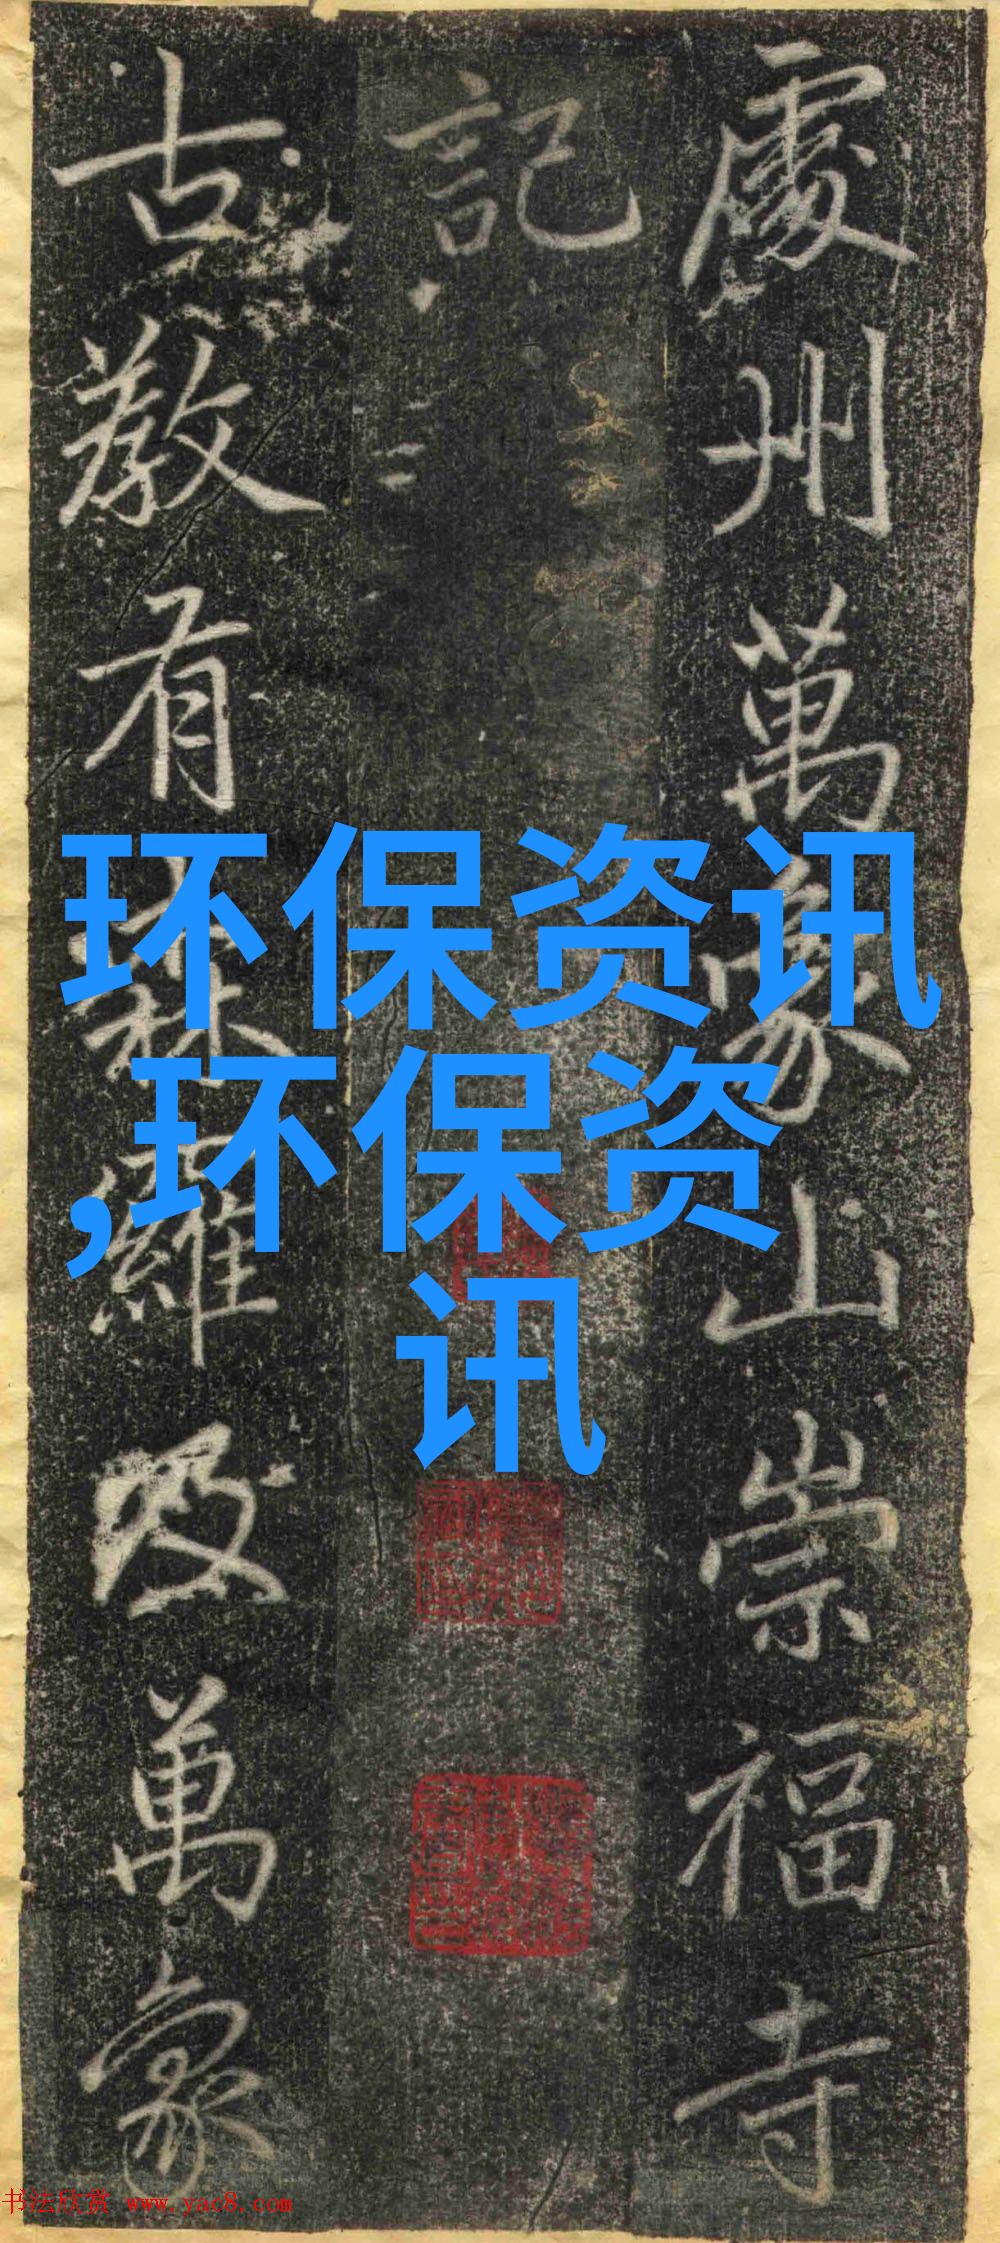 處州萬象山崇福寺
記
古教有森羅及萬象
环保资讯
,环保资
讯
书法欣赏 www.yac8.com